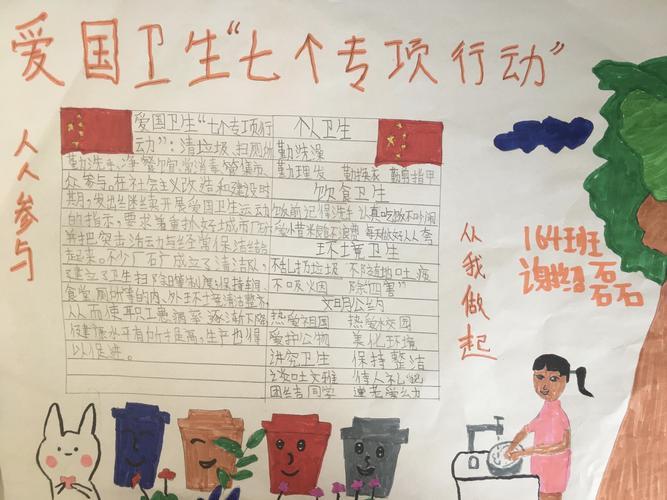 爱国卫生“七个专项行动”
人人参与
爱国卫生“七个专项行
动”:清垃圾 扫厕所
勤洗手 净餐馆 常消毒 管集市
众参与。在社会主义改造和建设时
期,发出继续开展爱国卫生运动
的指示,要求着重抓好城市厂矿
并把突击活动与经常保洁结合
起来。不少厂石广成立了清洁队,
建立了卫生扫除制度,保持车间
食堂厕所等的内外环境清洁整齐
从而使职工患病率逐渐下降
健康水平有所提高,生产也得
以促进。
个人卫生
勤洗澡
勤理发 勤换衣 勤剪指甲
饮食卫生
饭前记得洗手 认真吃饭不吵闹
爱惜米饭不浪费 每天做好人人夸
环境卫生
不乱扔垃圾 不随地吐痰
不吸火因 除“四害”
文明公约
热爱祖国 热爱校园
爱护公物 美化环境
讲究卫生 保持整洁
谈吐文雅 待人礼貌
团结同学 尊老爱幼
从我做起
164班
谢
磊